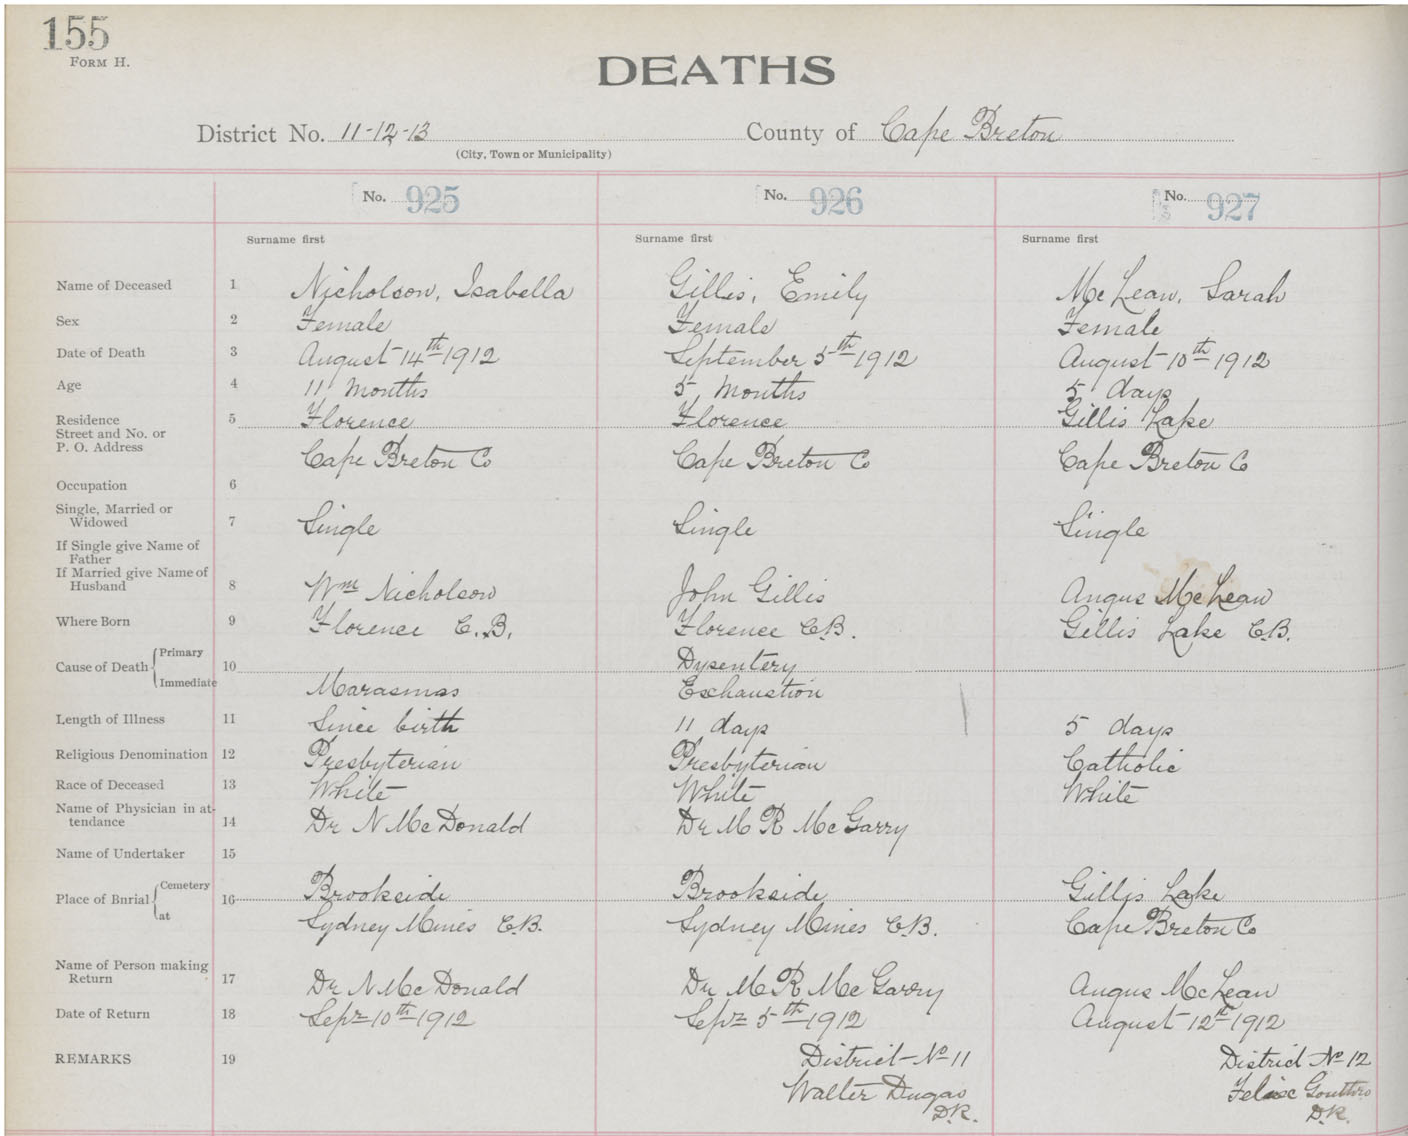 155
FORM H.
DEATHS
District No. 11-12-13 County of Cape Breton
(City, Town or Municipality)
No. 925 No. 926 No. 927
Surname first Surname first Surname first
Name of Deceased 1 Nicholson, Isabella Gillis, Emily McLean, Sarah
Sex 2 Female Female Female
Date of Death 3 August 14th 1912 September 5th 1912 August 10th 1912
Age 4 11 Months 5 Months 5 days
Residence 5 Florence Florence Gillis Lake
Street and No. or
P. O. Address Cape Breton Co Cape Breton Co Cape Breton Co
Occupation 6
Single, Married or
Widowed 7 Single Single Single
If Single give Name of
Father
If Married give Name of
Husband 8 Wm Nicholson John Gillis Angus McLean
Where Born 9 Florence C.B. Florence C.B. Gillis Lake C.B.
Cause of Death Primary 10 Dysentery
Immediate Marasmas Exhaustion
Length of Illness 11 Since birth 11 days 5 days
Religious Denomination 12 Presbyterian Presbyterian Catholic
Race of Deceased 13 White White White
Name of Physician in at-
tendance 14 Dr N McDonald Dr M R McGarry
Name of Undertaker 15
Place of Burial Cemetery 16 Brookside Brookside Gillis Lake
at Sydney Mines C.B. Sydney Mines C.B. Cape Breton Co
Name of Person making
Return 17 Dr N McDonald Dr M R McGarry Angus McLean
Date of Return 18 Sept 10th 1912 Sept 5th 1912 August 12th 1912
REMARKS 19 District No 11 District No 12
Walter Dugas Felix Gouthro
D.R. D.R.